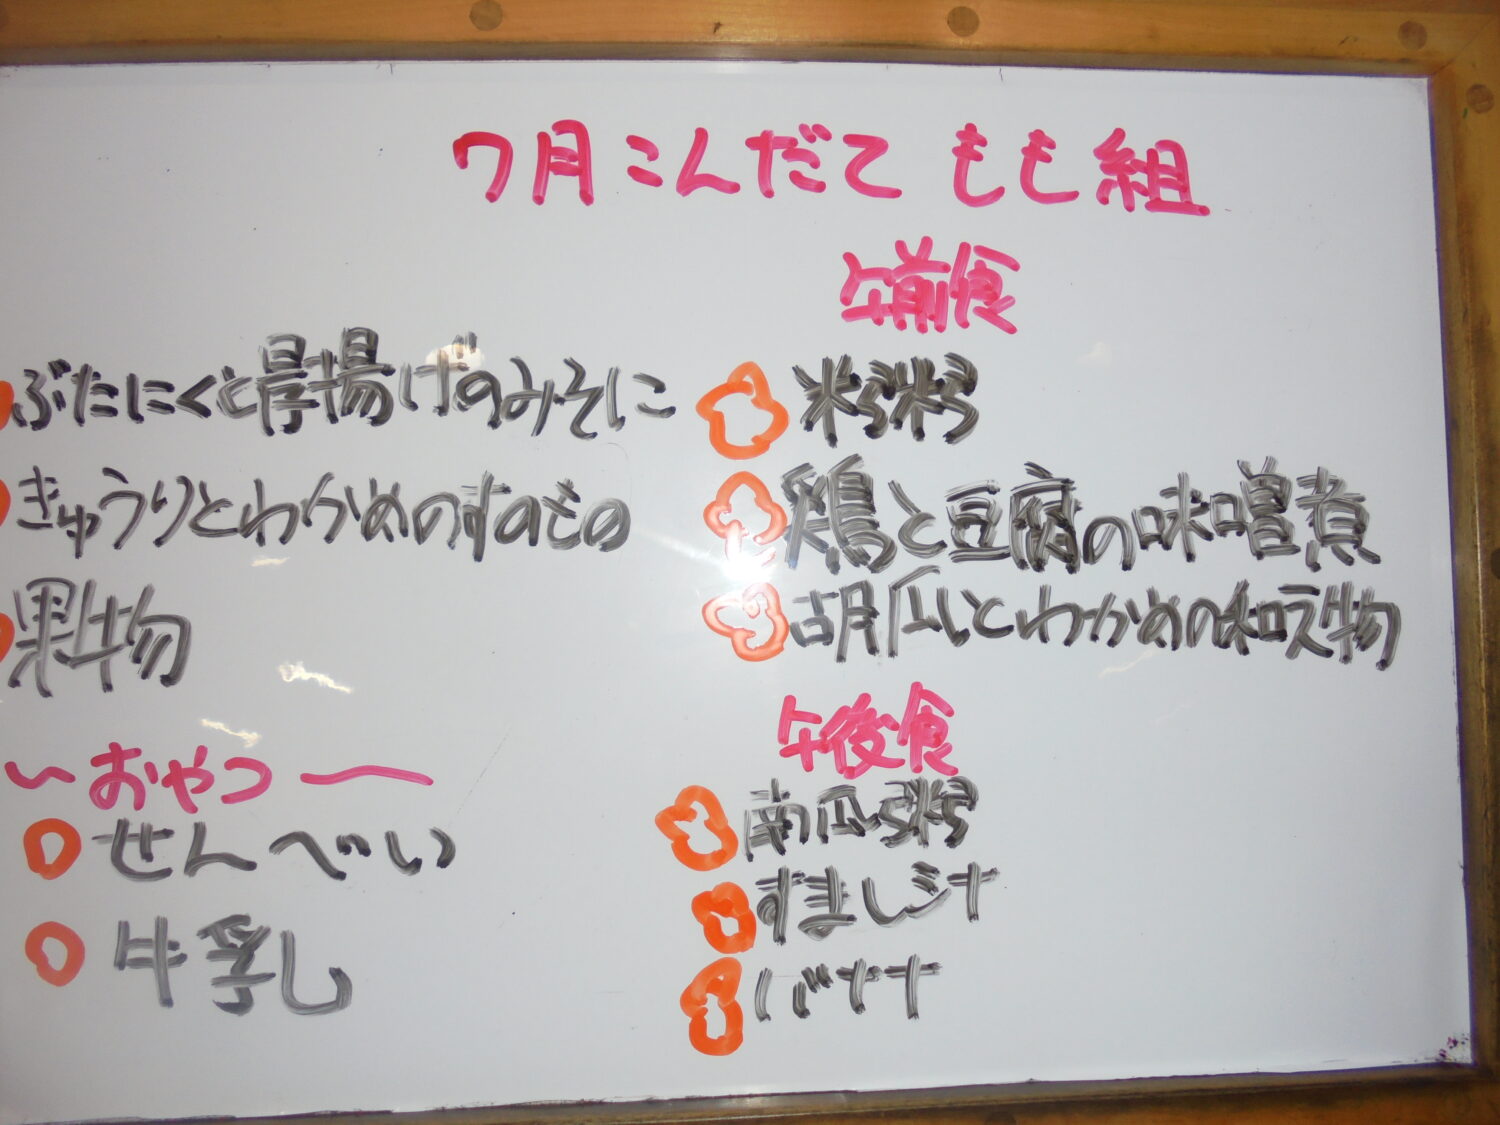 7月こんだて もも組
ぶたにくと厚揚げのみそに
きゅうりとわかめのすのもの
果物
〜おやつ〜
せんべい
牛乳
午前食
米粥
鶏と豆腐の味噌煮
胡瓜とわかめの和え物
午後食
南瓜粥
すまし汁
バナナ